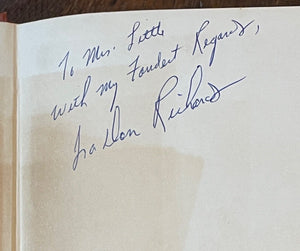 To Mrs. Little
with my Fondest Regards,
Ira Don Richards